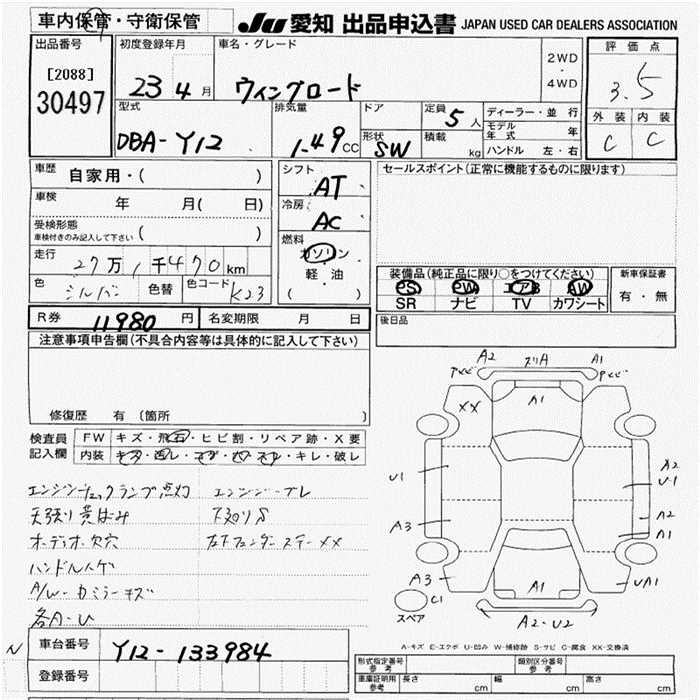 車内保管・守衛保管
JU 愛知 出品申込書 JAPAN USED CAR DEALERS ASSOCIATION
出品番号
[2088]
30497
初度登録年月
23 4 月
車名・グレード
ウィングロード
2WD
・
4WD
評価点
3.5
外装 内装
C C
型式
DBA-Y12
排気量
1.49 CC
ドア
形状
SW
定員
5 人
積載
kg
ディーラー・並行
モデル年式 年
ハンドル 左・右
車歴 自家用・( )
車検 年 月( 日)
受検形態
車検付きのみ記入して下さい ( )
走行
27万1千470km
色 シルバー 色替 色コード K23
シフト
AT
冷房
AC
燃料
ガソリン
軽・油
( )
セールスポイント(正常に機能するものに限ります)
装備品(純正品に限り○をつけてください)
PS PW エアB AW
SR ナビ TV カワシート
新車保証書
有・無
後日品
R券 11980 円 名変期限 月 日
注意事項申告欄(不具合内容等は具体的に記入して下さい)
修復歴 有 (箇所 )
検査員
記入欄
FW キズ・飛石・ヒビ割・リペア跡・X要
内装 キズ・汚レ・コゲ・穴・スレ・キレ・破レ
エンジンチェックランプ点灯 エンジンブレ
天張り黄ばみ 下廻りS
オーディオ欠穴 右下フェンダーステーXX
ハンドルハゲ
A/W・カミラーキズ
各A・U
A2 スリA A1
XX
A1
U1
A3
A2
U1
A2
A1
A3
C1
スペア
A1
UA1
A2-U2
A-キズ E-エクボ U-凹み W-補修跡 S-サビ C-腐食 XX-交換済
N
車台番号 Y12-133984
登録番号
形式指定番号
参考
類別区分番号
参考
車庫証明用
参考
長さ cm 幅 cm 高さ cm